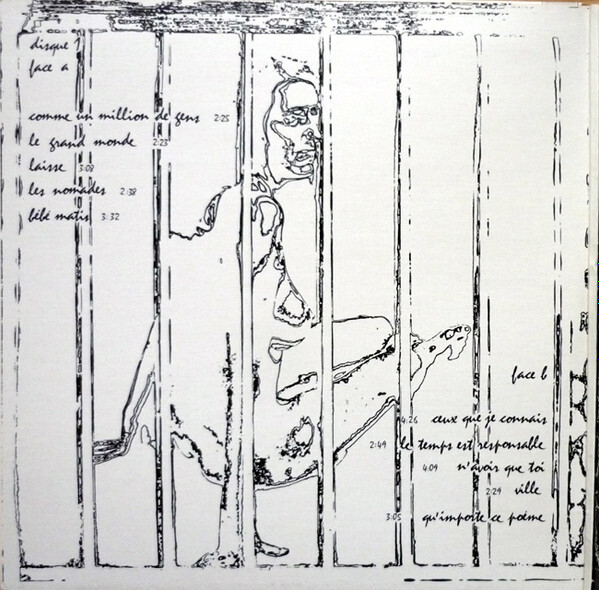 disque 1
face a
comme un million de gens 2:25
le grand monde 2:23
laisse 3:08
les nomades 2:38
bébé matis 3:32
face b
4:26 ceux que je connais
2:49 le temps est responsable
4:09 n'avoir que toi
2:29 ville
3:05 qu'importe ce poème